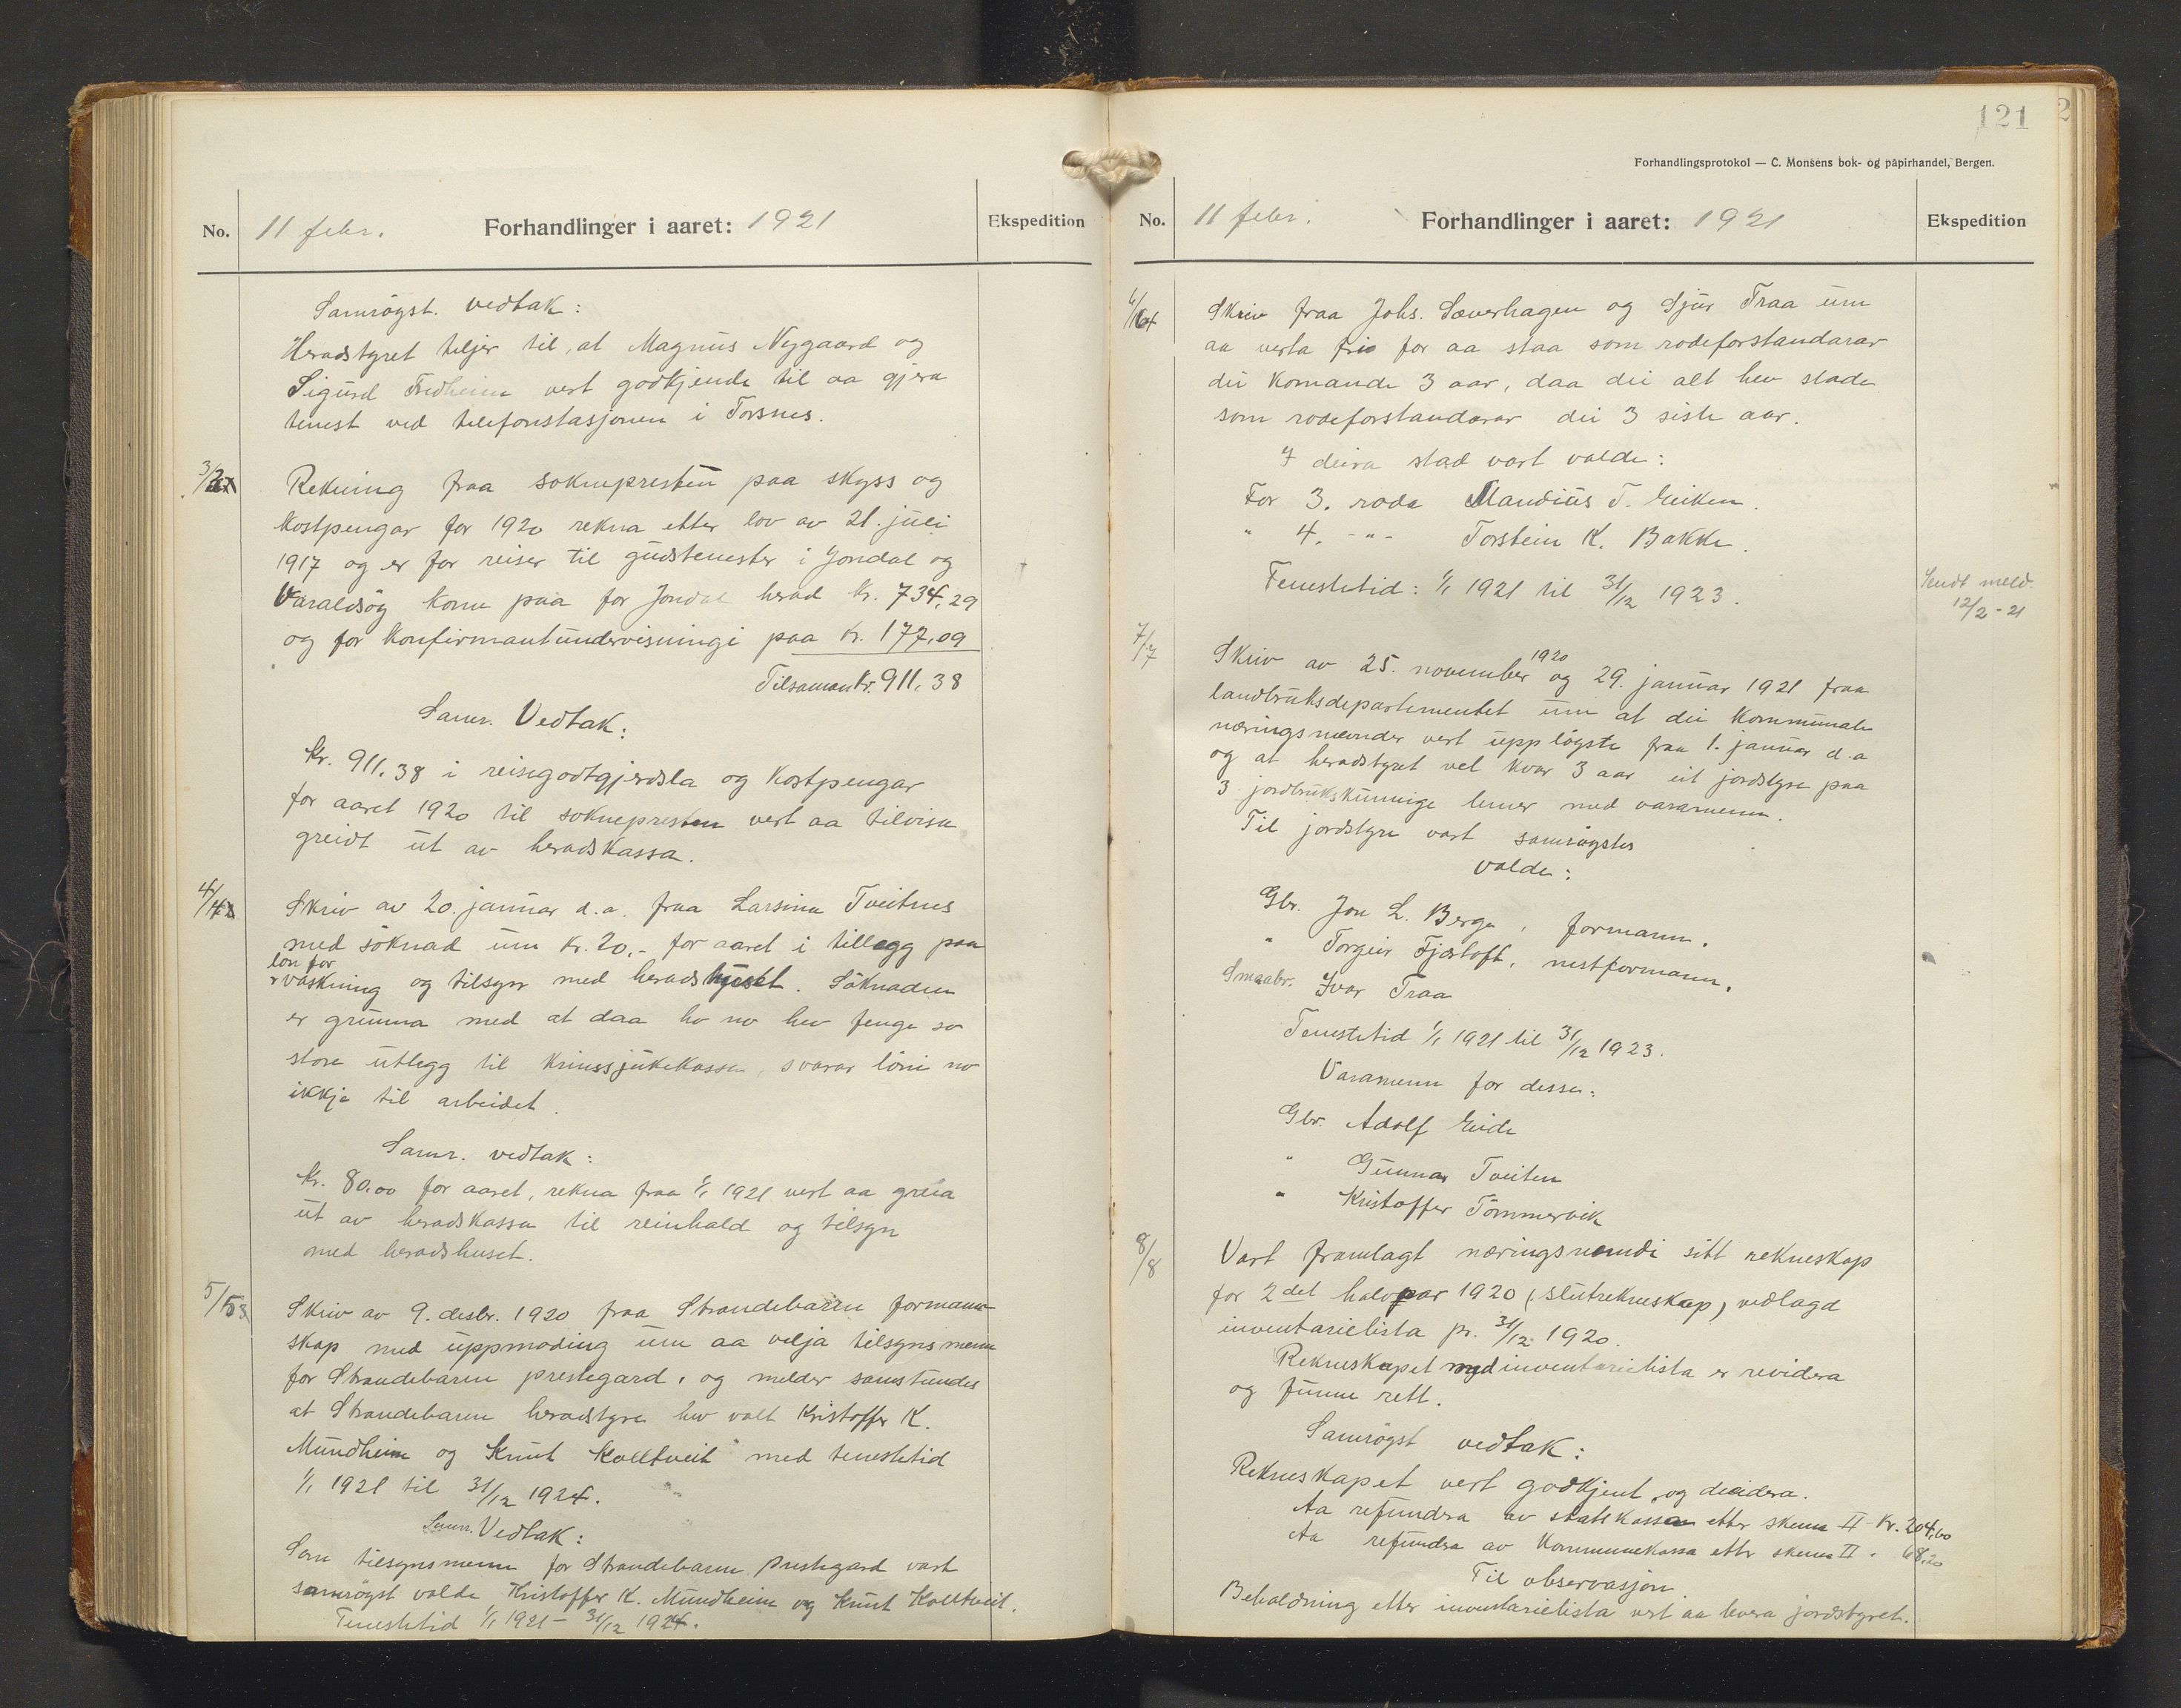 No. 11 febr. Forhandlinger i aaret: 1921 Ekspedition
Samrøgst. vedtak:
Heradstyret teljer til, at Magnus Nygaard og
Sigurd Fredheim vert godkjende til aa gjera
tenest ved telefonstasjonen i Torsnes.
3/ Rekning fraa soknepresten paa skyss og
kostpengar for 1920 rekna etter lov av 21. juli
1917 og er for reiser til gudstenester i Jondal og
Varaldsøy kome paa for Jondal herad kr. 734,29
og for konfirmantundervisningi paa kr. 177,09
Tilsaman kr. 911,38
Samr. Vedtak:
Kr. 911,38 i reisegodtgjerdsla og kostpengar
for aaret 1920 til soknepresten vert aa tilvisa
greidt ut av heradskassa.
4/4 Skriv av 20. januar d.a. fraa Larsina Tveitnes
med søknad um kr. 20,- for aaret i tillegg paa
løn for
vaskning og tilsyn med heradshuset. Søknaden
er grunna med at daa ho no hev fenge so
store utlegg til krinssjukekassa, svarar løni no
ikkje til arbeidet.
Samr. vedtak:
Kr. 80,00 for aaret, rekna fraa 1/1 1921 vert aa greia
ut av heradskassa til reinhald og tilsyn
med heradshuset.
5/5 Skriv av 9. desbr. 1920 fraa Strandebarm formann-
skap med uppmoding um aa velja tilsynsmenn
for Strandebarm prestegard, og melder samstundes
at Strandebarm heradstyre hev valt Kristoffer K.
Mundheim og Knut Kolltveit med tenestetid
1/1 1921 til 31/12 1924.
Samr. Vedtak:
Som tilsynsmenn for Strandebarm prestegard vart
samrøgst valde Kristoffer K. Mundheim og Knut Kolltveit.
Tenestetid 1/1 1921 – 31/12 1924.
121
Forhandlingsprotokol — C. Monsens bok- og papirhandel, Bergen.
No. 11 febr. Forhandlinger i aaret: 1921 Ekspedition
6/6 Skriv fraa Johs. Sæverhagen og Sjur Traa um
aa verta frie for aa staa som rodeforstandarar
dei komande 3 aar, daa dei alt hev stade
som rodeforstandarar dei 3 siste aar.
I deira stad vart valde:
For 3. roda Mandius T. Eiken.
" 4. -"- Torstein K. Bakke.
Tenestetid: 1/1 1921 til 31/12 1923.
Sendt meld.
12/2-21
7/7 Skriv av 25. november 1920 og 29. januar 1921 fraa
landbruksdepartementet um at dei kommunale
næringsnemnder vert uppløyste fraa 1. januar d.a
og at heradstyret vel kvar 3 aar eit jordstyre paa
3 jordbrukskunnige lemer med varamenn.
Til jordstyre vart samrøgstes
valde:
Gbr. Jon L. Berge, formann.
" Torgeir Fjæstoft, nestformann.
Smaabr. Ivar Traa
Tenestetid 1/1 1921 til 31/12 1923.
Varamenn for desse:
Gbr. Adolf Eide
" Gunnar Tveiten
" Kristoffer Tømmervik
8/8 Vart framlagt næringsnemndi sitt rekneskap
for 2det halvaar 1920 (sluttrekneskap) vedlagd
inventarielista pr. 31/12 1920.
Rekneskapet med inventarielista er revidera
og funne rett.
Samrøgst vedtak:
Rekneskapet vert godkjent og decidera.
Aa refundra av statskassa etter skema II - kr. 204,00
Aa refundra av kommunekassa etter skema II " 68,20
Til observasjon.
Behaldning etter inventarielista vert aa levera jordstyret.